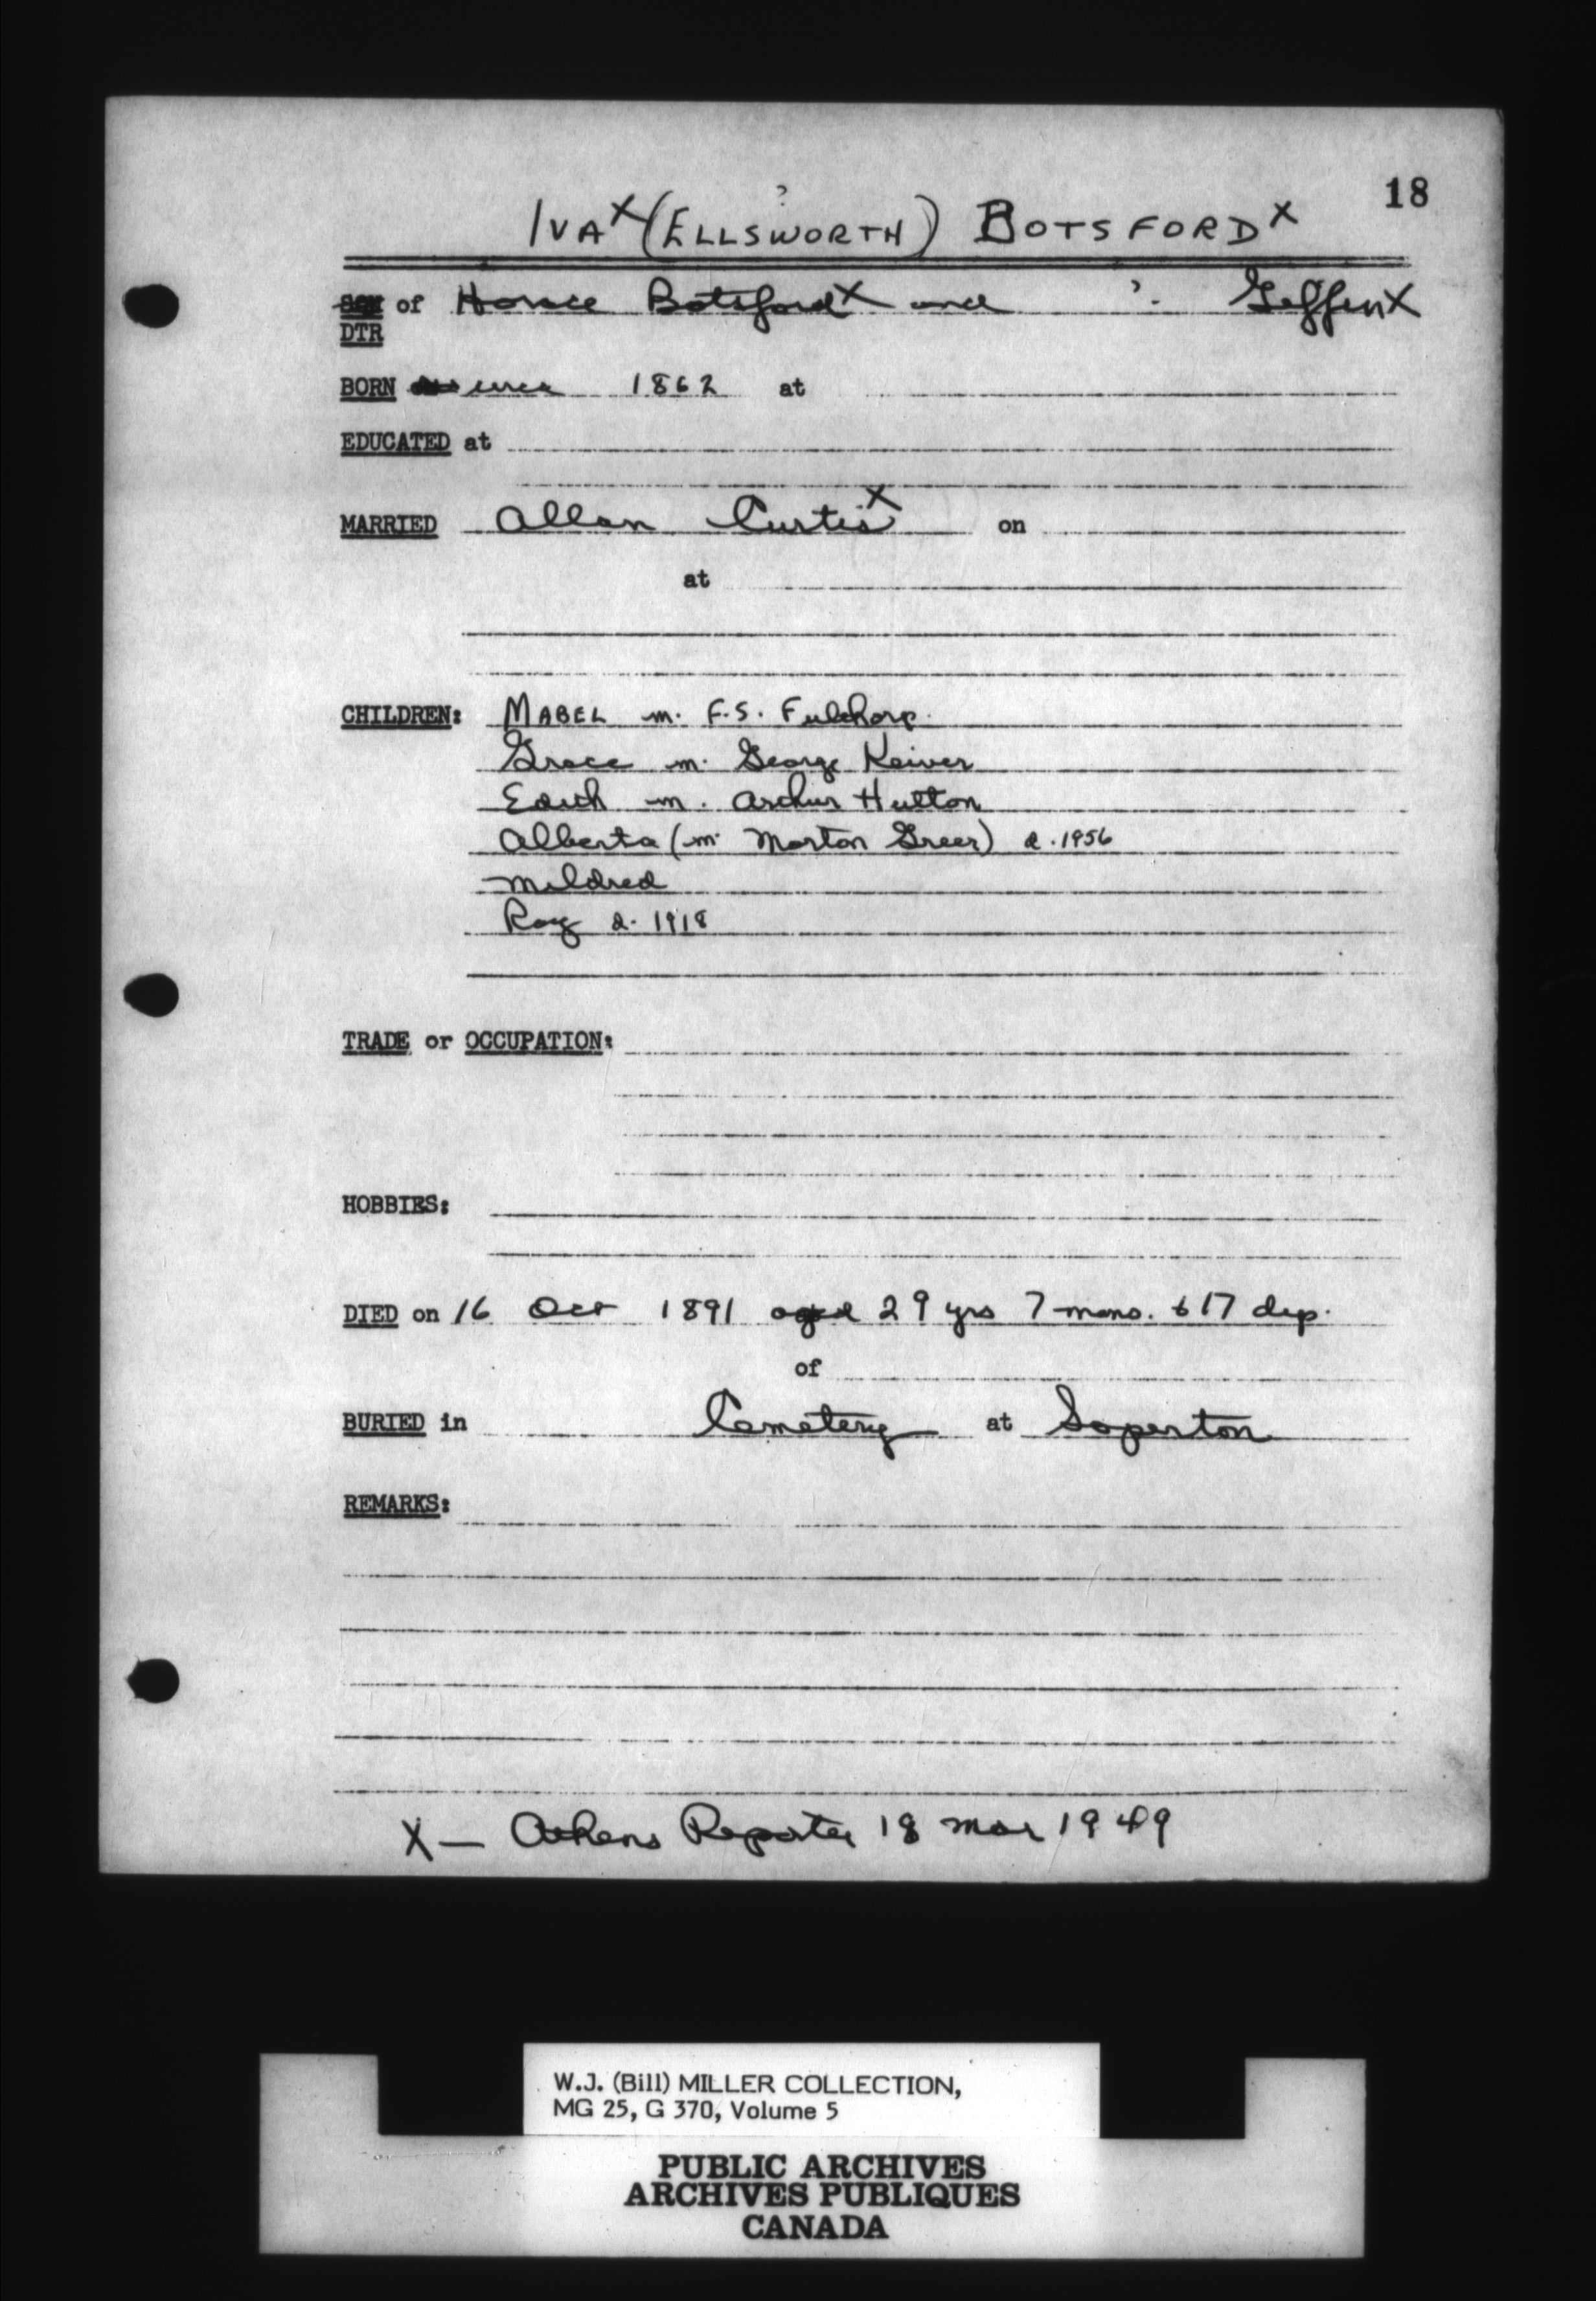 18
?
IVA X (ELLSWORTH) BOTSFORD X
SON of Horace Botsford X and ? Giffin X
DTR
BORN circa 1862 at
EDUCATED at
MARRIED Allan Curtis X on
at
CHILDREN: MABEL m. F.S. Fulthorp.
Grace m. George Keiver
Edith m. Arthur Hutton
Alberta (m. Morton Greer) d. 1956
Mildred
Roy d. 1918
TRADE or OCCUPATION:
HOBBIES:
DIED on 16 Oct 1891 aged 29 yrs 7 mons. & 17 dys.
of
BURIED in Cemetery at Soperton
REMARKS:
X — Athens Reporter 18 Mar 1949
W.J. (Bill) MILLER COLLECTION,
MG 25, G 370, Volume 5
PUBLIC ARCHIVES
ARCHIVES PUBLIQUES
CANADA